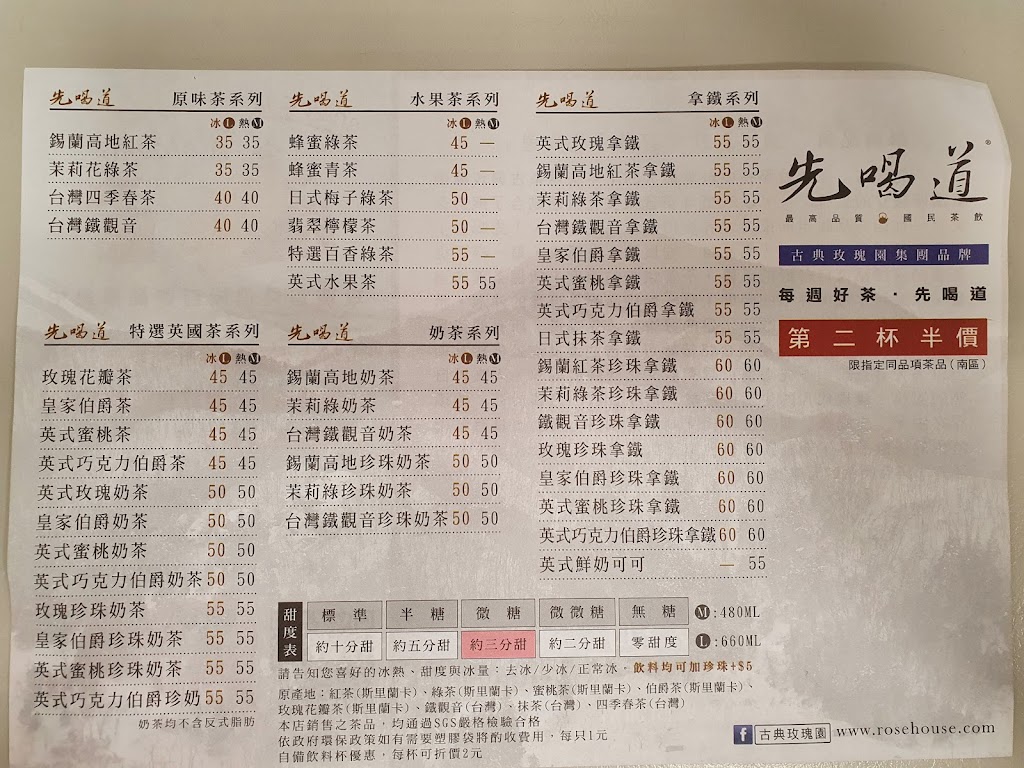 先喝道 原味茶系列
冰 L 熱 M
錫蘭高地紅茶 35 35
茉莉花綠茶 35 35
台灣四季春茶 40 40
台灣鐵觀音 40 40
先喝道 特選英國茶系列
冰 L 熱 M
玫瑰花瓣茶 45 45
皇家伯爵茶 45 45
英式蜜桃茶 45 45
英式巧克力伯爵茶 45 45
英式玫瑰奶茶 50 50
皇家伯爵奶茶 50 50
英式蜜桃奶茶 50 50
英式巧克力伯爵奶茶 50 50
玫瑰珍珠奶茶 55 55
皇家伯爵珍珠奶茶 55 55
英式蜜桃珍珠奶茶 55 55
英式巧克力伯爵珍奶 55 55
奶茶均不含反式脂肪
先喝道 水果茶系列
冰 L 熱 M
蜂蜜綠茶 45 —
蜂蜜青茶 45 —
日式梅子綠茶 50 —
翡翠檸檬茶 50 —
特選百香綠茶 55 —
英式水果茶 55 55
先喝道 奶茶系列
冰 L 熱 M
錫蘭高地奶茶 45 45
茉莉綠奶茶 45 45
台灣鐵觀音奶茶 45 45
錫蘭高地珍珠奶茶 50 50
茉莉綠珍珠奶茶 50 50
台灣鐵觀音珍珠奶茶 50 50
先喝道 拿鐵系列
冰 L 熱 M
英式玫瑰拿鐵 55 55
錫蘭高地紅茶拿鐵 55 55
茉莉綠茶拿鐵 55 55
台灣鐵觀音拿鐵 55 55
皇家伯爵拿鐵 55 55
英式蜜桃拿鐵 55 55
英式巧克力伯爵拿鐵 55 55
日式抹茶拿鐵 55 55
錫蘭紅茶珍珠拿鐵 60 60
茉莉綠茶珍珠拿鐵 60 60
鐵觀音珍珠拿鐵 60 60
玫瑰珍珠拿鐵 60 60
皇家伯爵珍珠拿鐵 60 60
英式蜜桃珍珠拿鐵 60 60
英式巧克力伯爵珍珠拿鐵 60 60
英式鮮奶可可 — 55
甜度表
標準 半糖 微糖 微微糖 無糖
約十分甜 約五分甜 約三分甜 約二分甜 零甜度
M:480ML
L:660ML
請告知您喜好的冰熱、甜度與冰量:去冰/少冰/正常冰。飲料均可加珍珠+$5
原產地:紅茶(斯里蘭卡)、綠茶(斯里蘭卡)、蜜桃茶(斯里蘭卡)、伯爵茶(斯里蘭卡)、
玫瑰花瓣茶(斯里蘭卡)、鐵觀音(台灣)、抹茶(台灣)、四季春茶(台灣)
本店銷售之茶品,均通過SGS嚴格檢驗合格
依政府環保政策如有需要塑膠袋將酌收費用,每只1元
自備飲料杯優惠,每杯可折價2元
先喝道®
最高品質 國民茶飲
古典玫瑰園集團品牌
每週好茶・先喝道
第二杯半價
限指定同品項茶品(南區)
f 古典玫瑰園 www.rosehouse.com